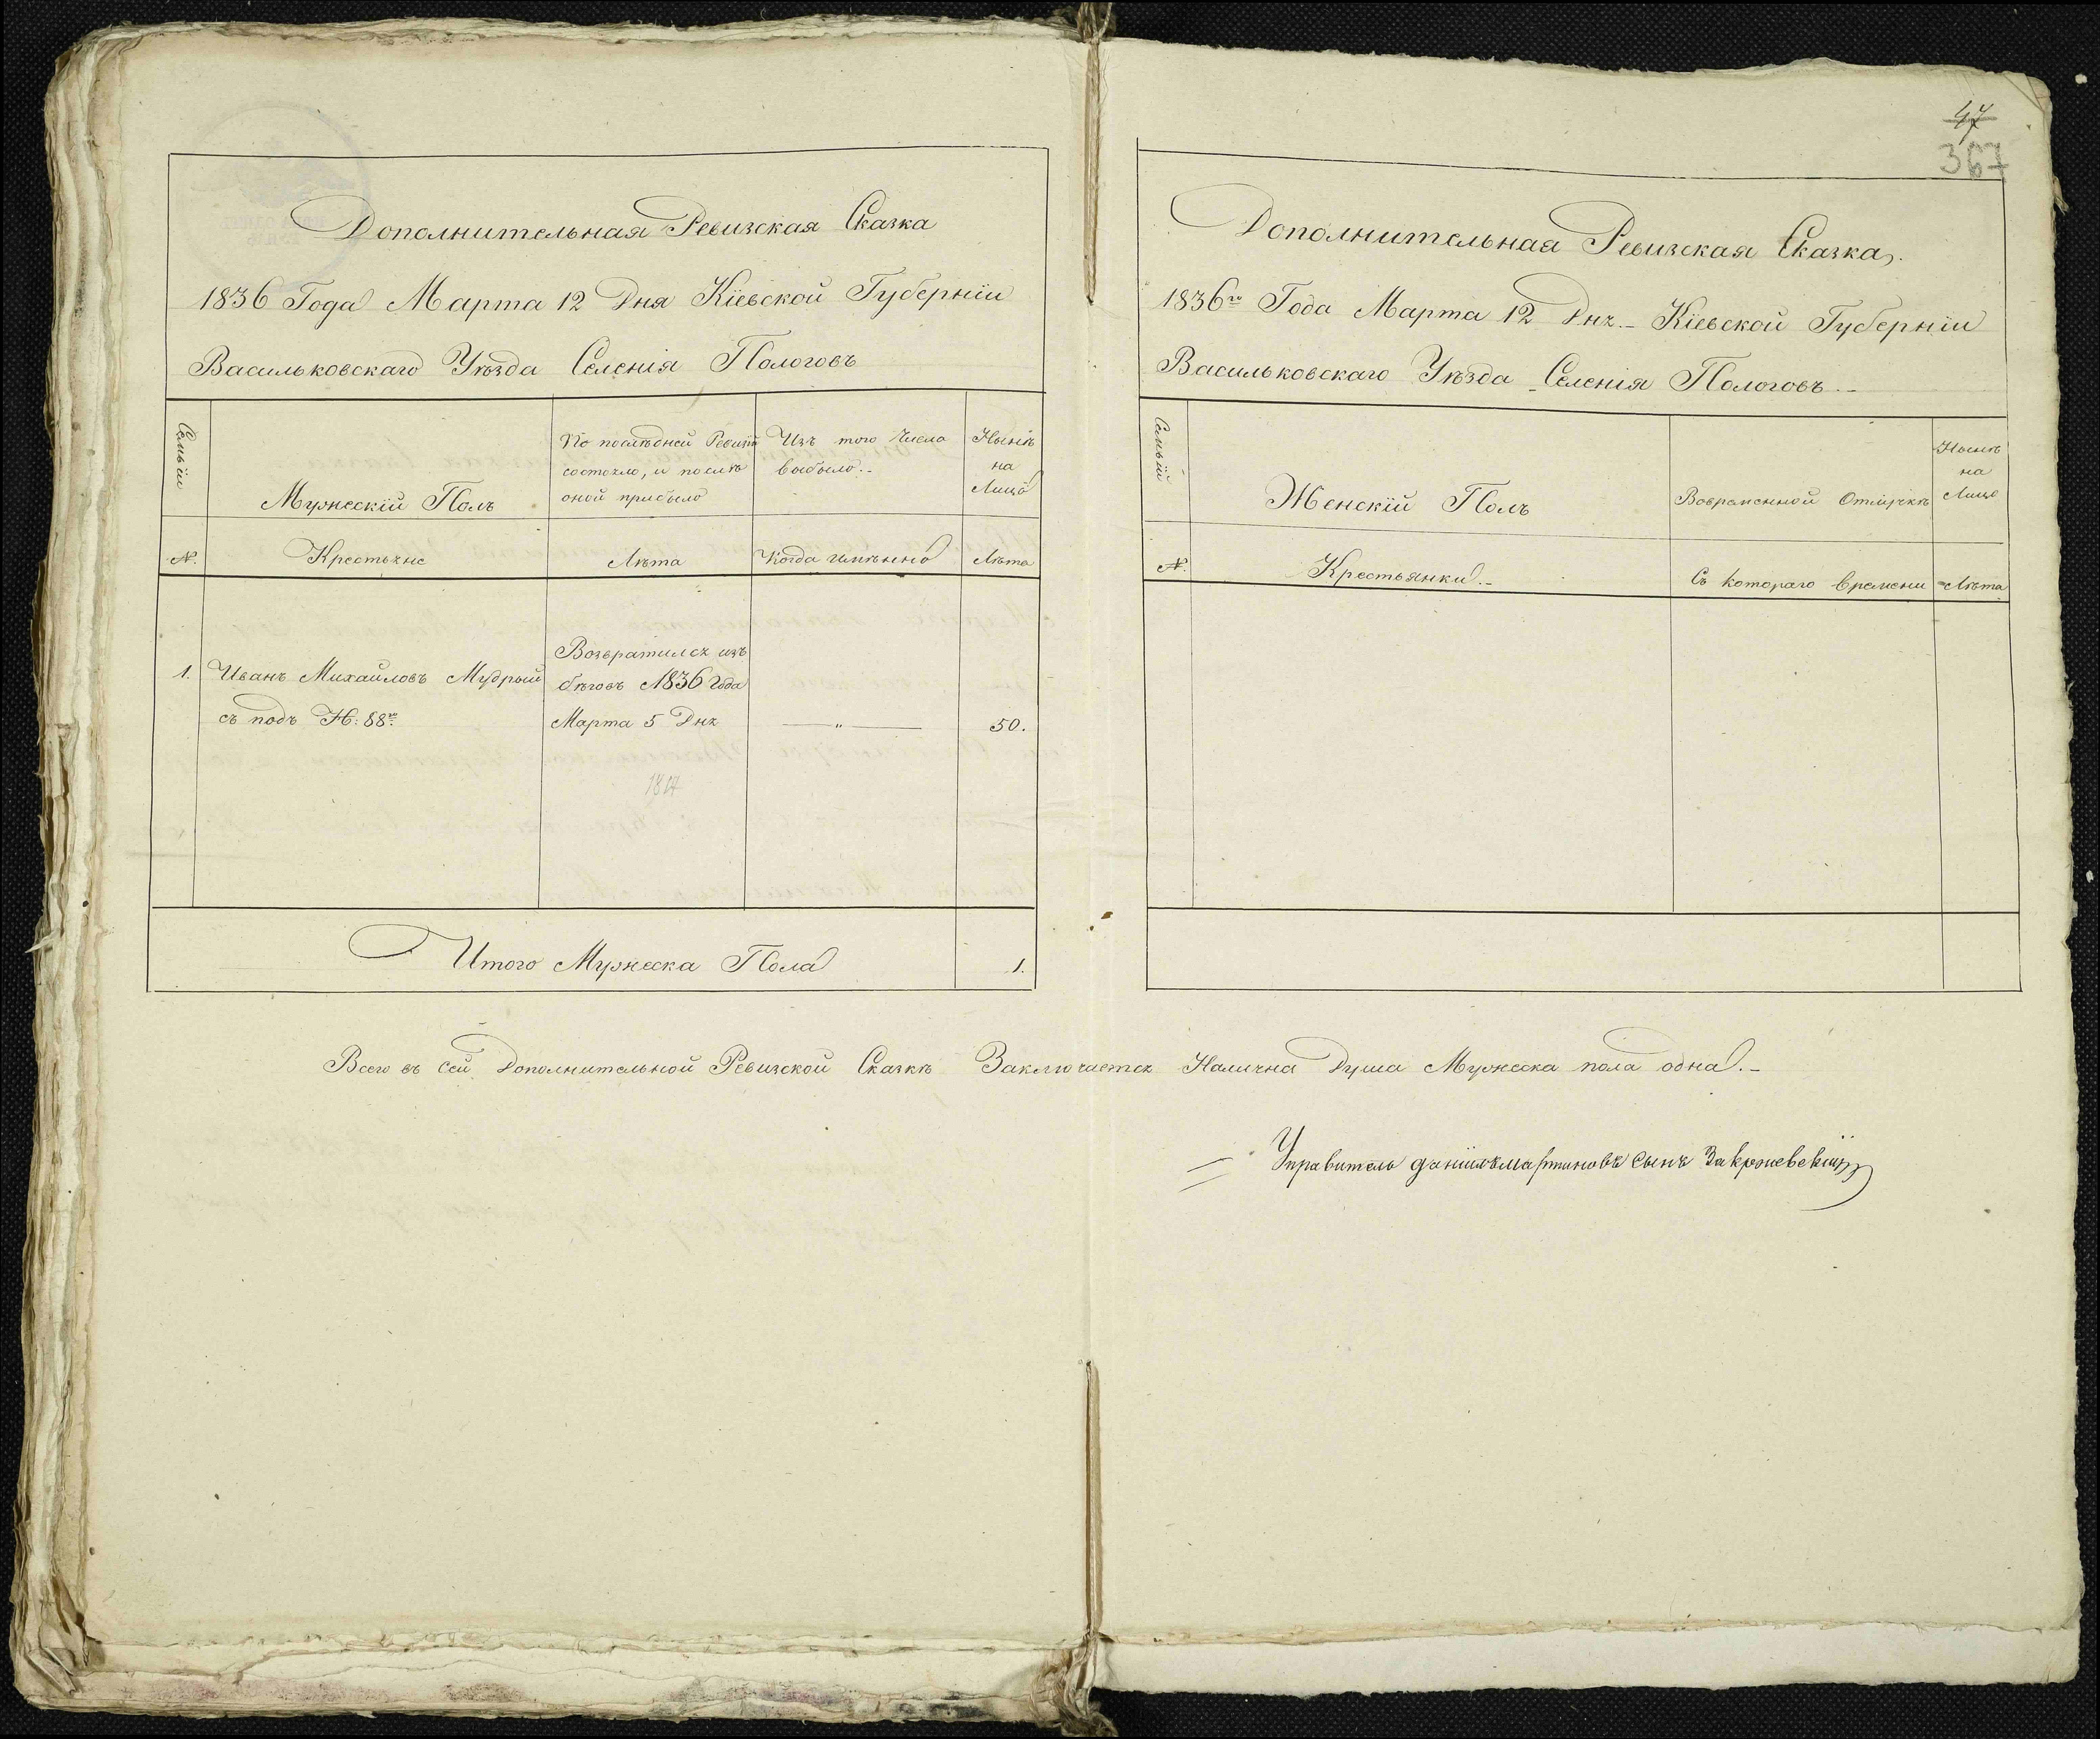 Дополнительная Ревизская Сказка
1836 Года Марта 12 Дня Кіевской Губерніи
Васильковскаго Уѣзда Селенія Пологовъ
Семьіи
Мужескій Полъ
По послѣдней Ревизіи
состояло, и послѣ
оной прибыло
Изъ того Числа
выбыло.-
Нынѣ
на
Лицо
№.
Крестьяне
Лѣта
Когда имѣнно
Лѣта
1.
Иванъ Михайловъ Мудрый
съ подъ №: 88го
Возвратился изъ
бѣговъ 1836 Года
Марта 5 Дня
"
50.
1817
Итого Мужеска Пола
1.
47
367
Дополнительная Ревизская Сказка.
1836го Года Марта 12 Дня.- Кіевской Губерніи
Васильковскаго Уѣзда Селенія Пологовъ.-
Семьіи
Женскій Полъ
Вовременной Отлучкѣ
Нынѣ
на
Лицо
№.
Крестьянки.-
Съ котораго Времени
Лѣта
Всего въ сей Дополнительной Ревизской Сказкѣ Заключается Налична Душа Мужеска пола одна.-
Управитель Даніилъ Мартиновъ Сынъ Закржевскій